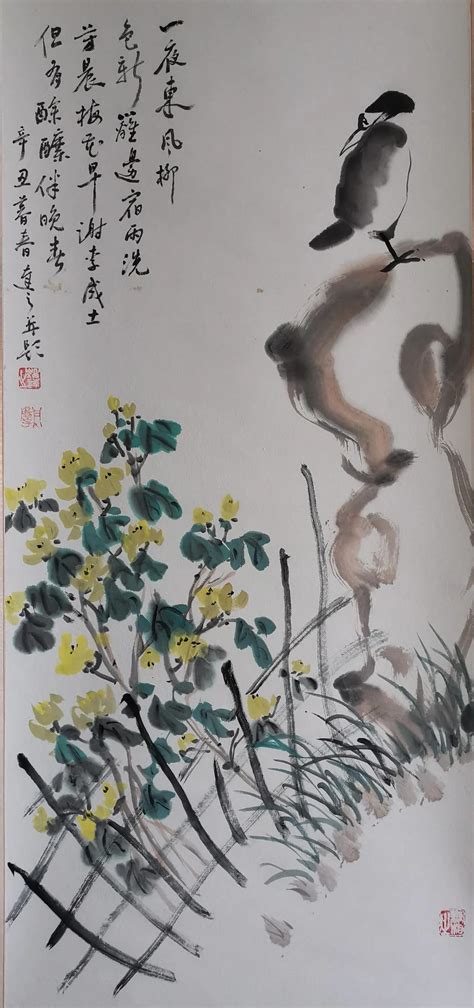 一夜東風柳
色新籬邊宿雨洗
芳晨梅花早謝李成土
但有酴醾伴晚春
辛丑暮春之并題